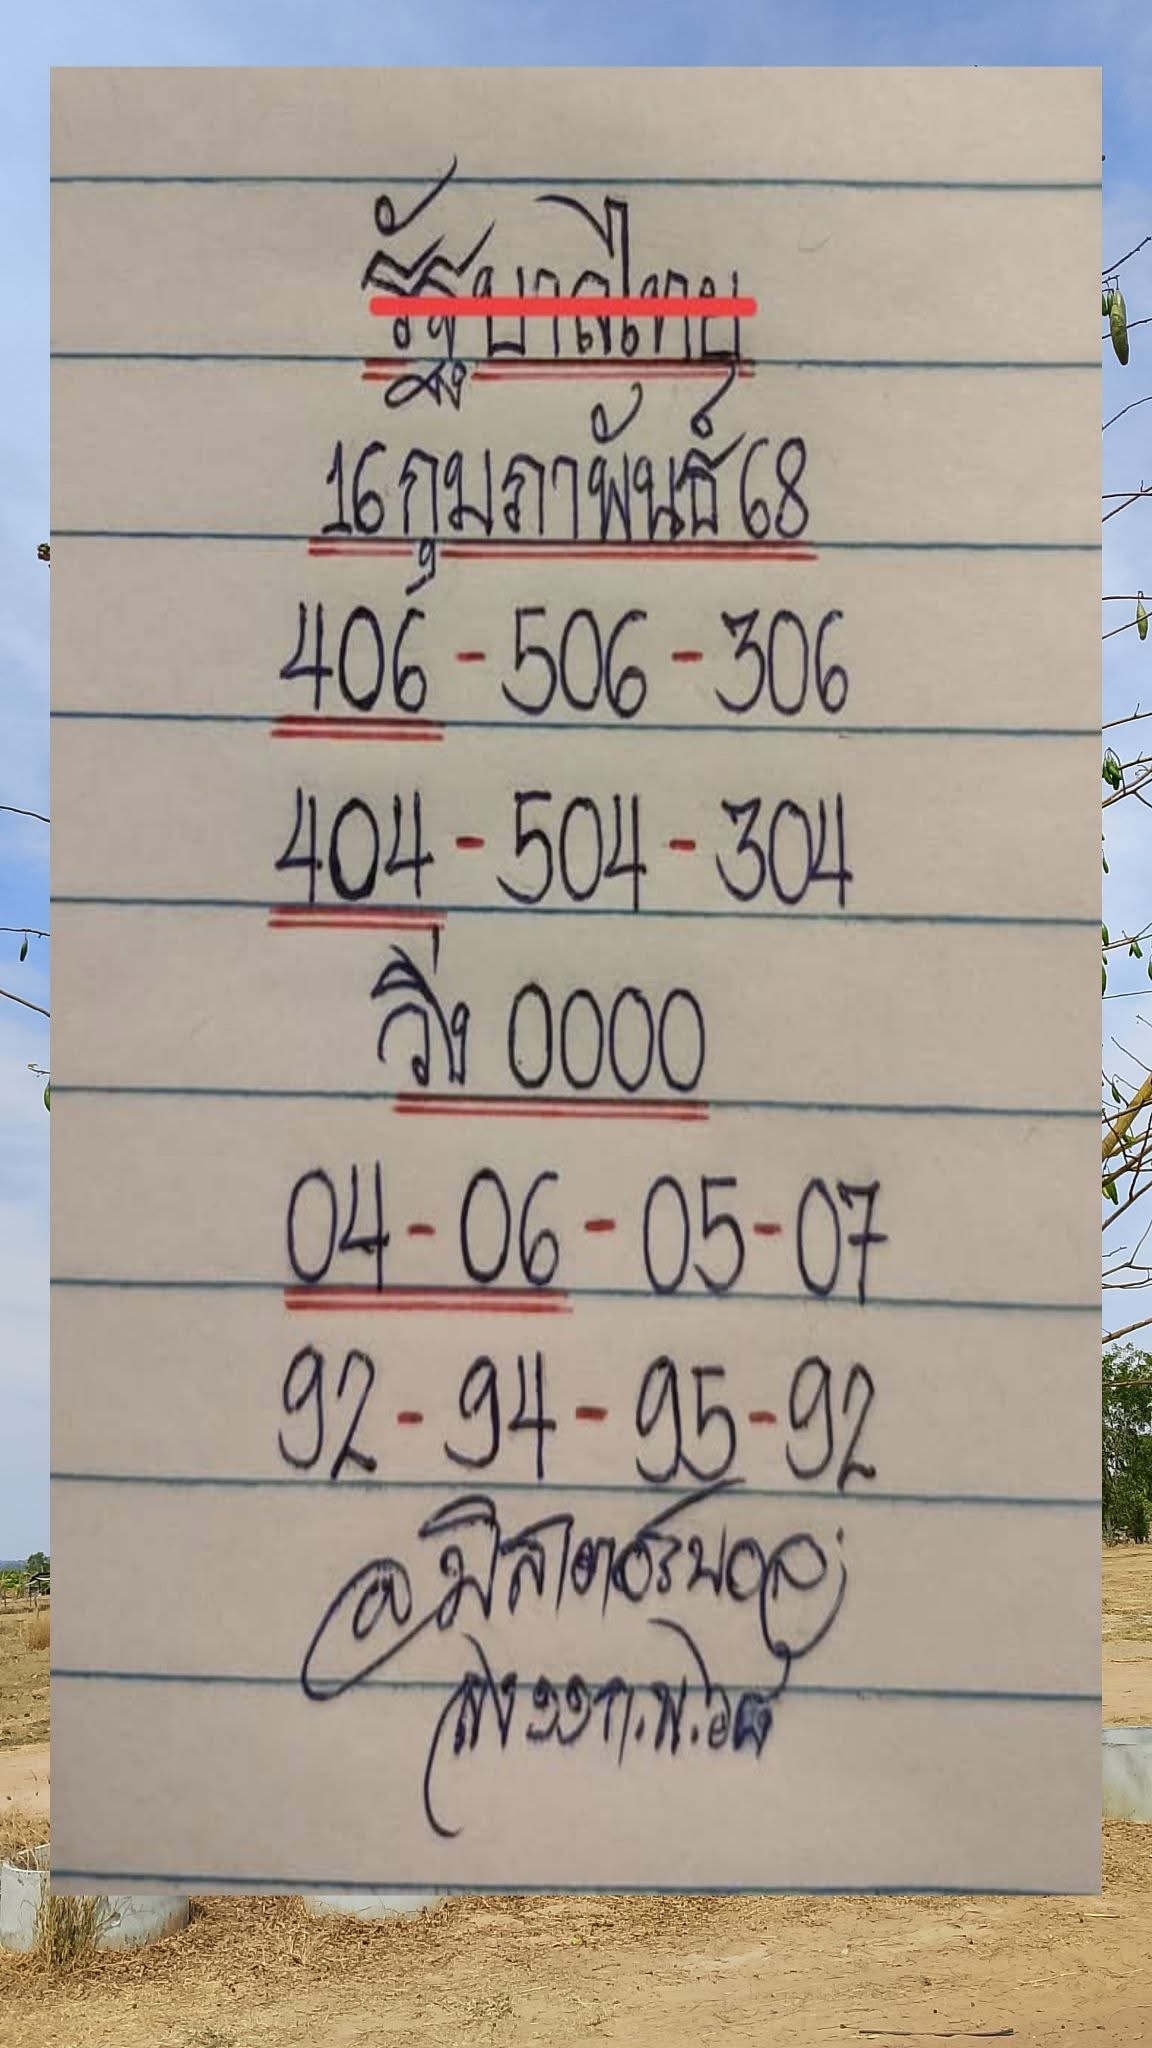 รัฐบาลไทย
16 กุมภาพันธ์ 68
406 - 506 - 306
404 - 504 - 304
วิ่ง 0000
04 - 06 - 05 - 07
92 - 94 - 95 - 92
@มิสเตอร์บอล
ส่ง ๑๑ ก.พ. ๖๘